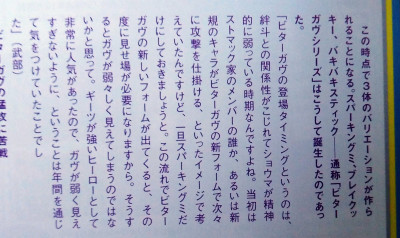 この時点で3体のバリエーションが作ら
れることになる。スパーキングミ、ブレイクッ
キー、バキバキスティック――通称「ビター
ガヴシリーズ」はこうして誕生したのであっ
た。
「ビターガヴの登場タイミングというのは、
絆斗との関係性がこじれてショウマが精神
的に弱っている時期なんですよね。当初は
ストマック家のメンバーの誰か、あるいは新
規のキャラがビターガヴの新フォームで次々
に攻撃を仕掛ける、といったイメージで考
えていたんですけど、一旦スパーキングミだ
けにしておきましょうと。この流れでビター
ガヴの新しいフォームが出てくると、その
度に見せ場が必要になりますから。そうす
るとガヴが弱々しく見えてしまうのではな
いかと思って。ギーツが強いヒーローとして
非常に人気があったので、ガヴが弱く見え
すぎないように、ということは年間を通じ
て気をつけていたことでし
（武部）
ビターガヴの猛攻に苦戦